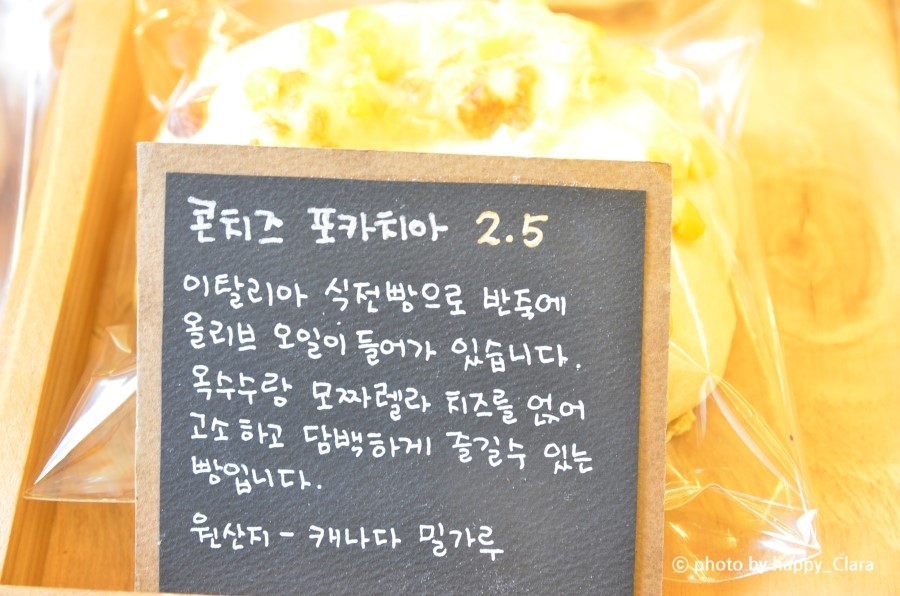 콘치즈 포카치아 2.5
이탈리아 식전빵으로 반죽에
올리브 오일이 들어가 있습니다.
옥수수랑 모짜렐라 치즈를 얹어
고소하고 담백하게 즐길수 있는
빵입니다.
원산지 - 캐나다 밀가루
© photo by happy_Clara